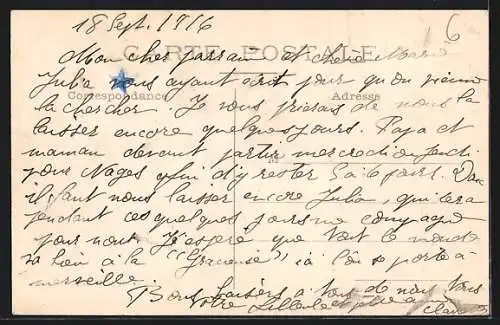 18 Sept. 1916
6
CARTE POSTALE
Mon cher parrain et chère
Julia nous ayant écrit pour qu'on vienne
Correspondance
Adresse
la chercher. Je vous prierais de nous la
laisser encore quelques jours. Papa et
maman devant partir mercredi ou jeudi
pour Nages afin d'y rester 5 à 6 jours. Donc
il faut nous laisser encore Julia, qui sera
pendant ces quelques jours une compagne
pour nous. J'espère que tout le monde
va bien à la "Gracieuse" ici l'on se porte à
merveille.
Bons baisers à tous de nous tous
Votre filleule et